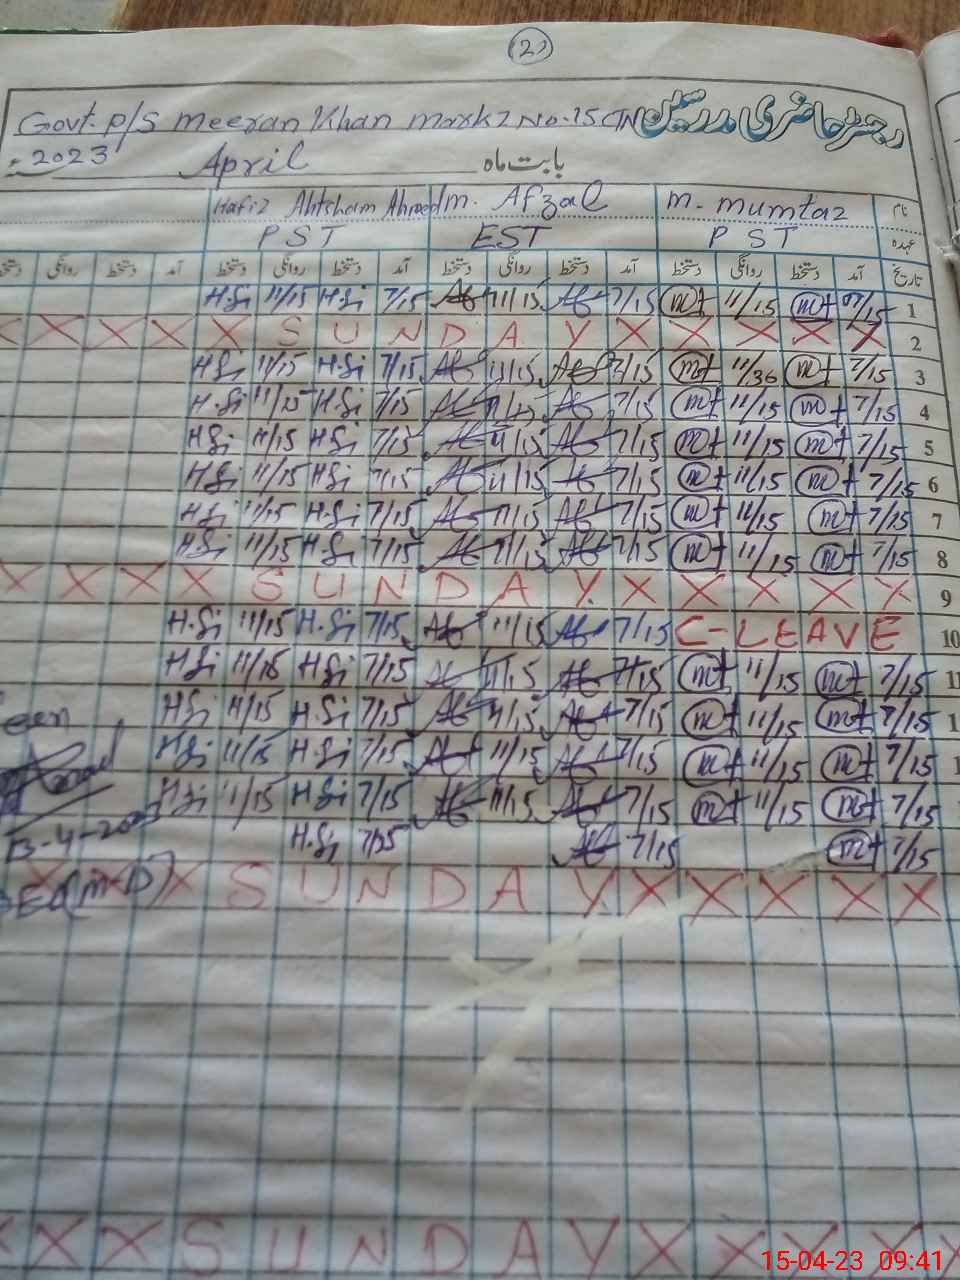 (2)
Govt. P/S Meeran Khan markz No. 15 رجسٹر حاضری مدرسین
2023 April بابت ماہ
Hafiz Ahtsham Ahmed m. Afzal m. mumtaz نام
PST EST PST عہدہ
دستخط روانگی دستخط آمد دستخط روانگی دستخط آمد دستخط روانگی دستخط آمد دستخط روانگی دستخط آمد تاریخ
H.Si 11/15 H.Si 7/15 Af 11/15 Af 7/15 mt 11/15 mt 07/15 1
X X X X S U N D A Y X X X X X 2
H.Si 11/15 H.Si 7/15 Af 11/15 Af 7/15 mt 11/36 mt 7/15 3
H.Si 11/15 H.Si 7/15 Af 11/15 Af 7/15 mt 11/15 mt 7/15 4
H.Si 11/15 H.Si 7/15 Af 11/15 Af 7/15 mt 11/15 mt 7/15 5
H.Si 11/15 H.Si 7/15 Af 11/15 Af 7/15 mt 11/15 mt 7/15 6
H.Si 11/15 H.Si 7/15 Af 11/15 Af 7/15 mt 11/15 mt 7/15 7
H.Si 11/15 H.Si 7/15 Af 11/15 Af 7/15 mt 11/15 mt 7/15 8
X X X X S U N D A Y X X X X X 9
H.Si 11/15 H.Si 7/15 Af 11/15 Af 7/15 C-LEAVE 10
H.Si 11/15 H.Si 7/15 Af 11/15 Af 7/15 mt 11/15 mt 7/15
H.Si 11/15 H.Si 7/15 Af 11/15 Af 7/15 mt 11/15 mt 7/15
H.Si 11/15 H.Si 7/15 Af 11/15 Af 7/15 mt 11/15 mt 7/15
H.Si 11/15 H.Si 7/15 Af 11/15 Af 7/15 mt 11/15 mt 7/15
13-4-2023 H.Si 7/15 Af 7/15 mt 7/15
X X X S U N D A Y X X X X X
X X X S U N D A Y X X X X
15-04-23 09:41